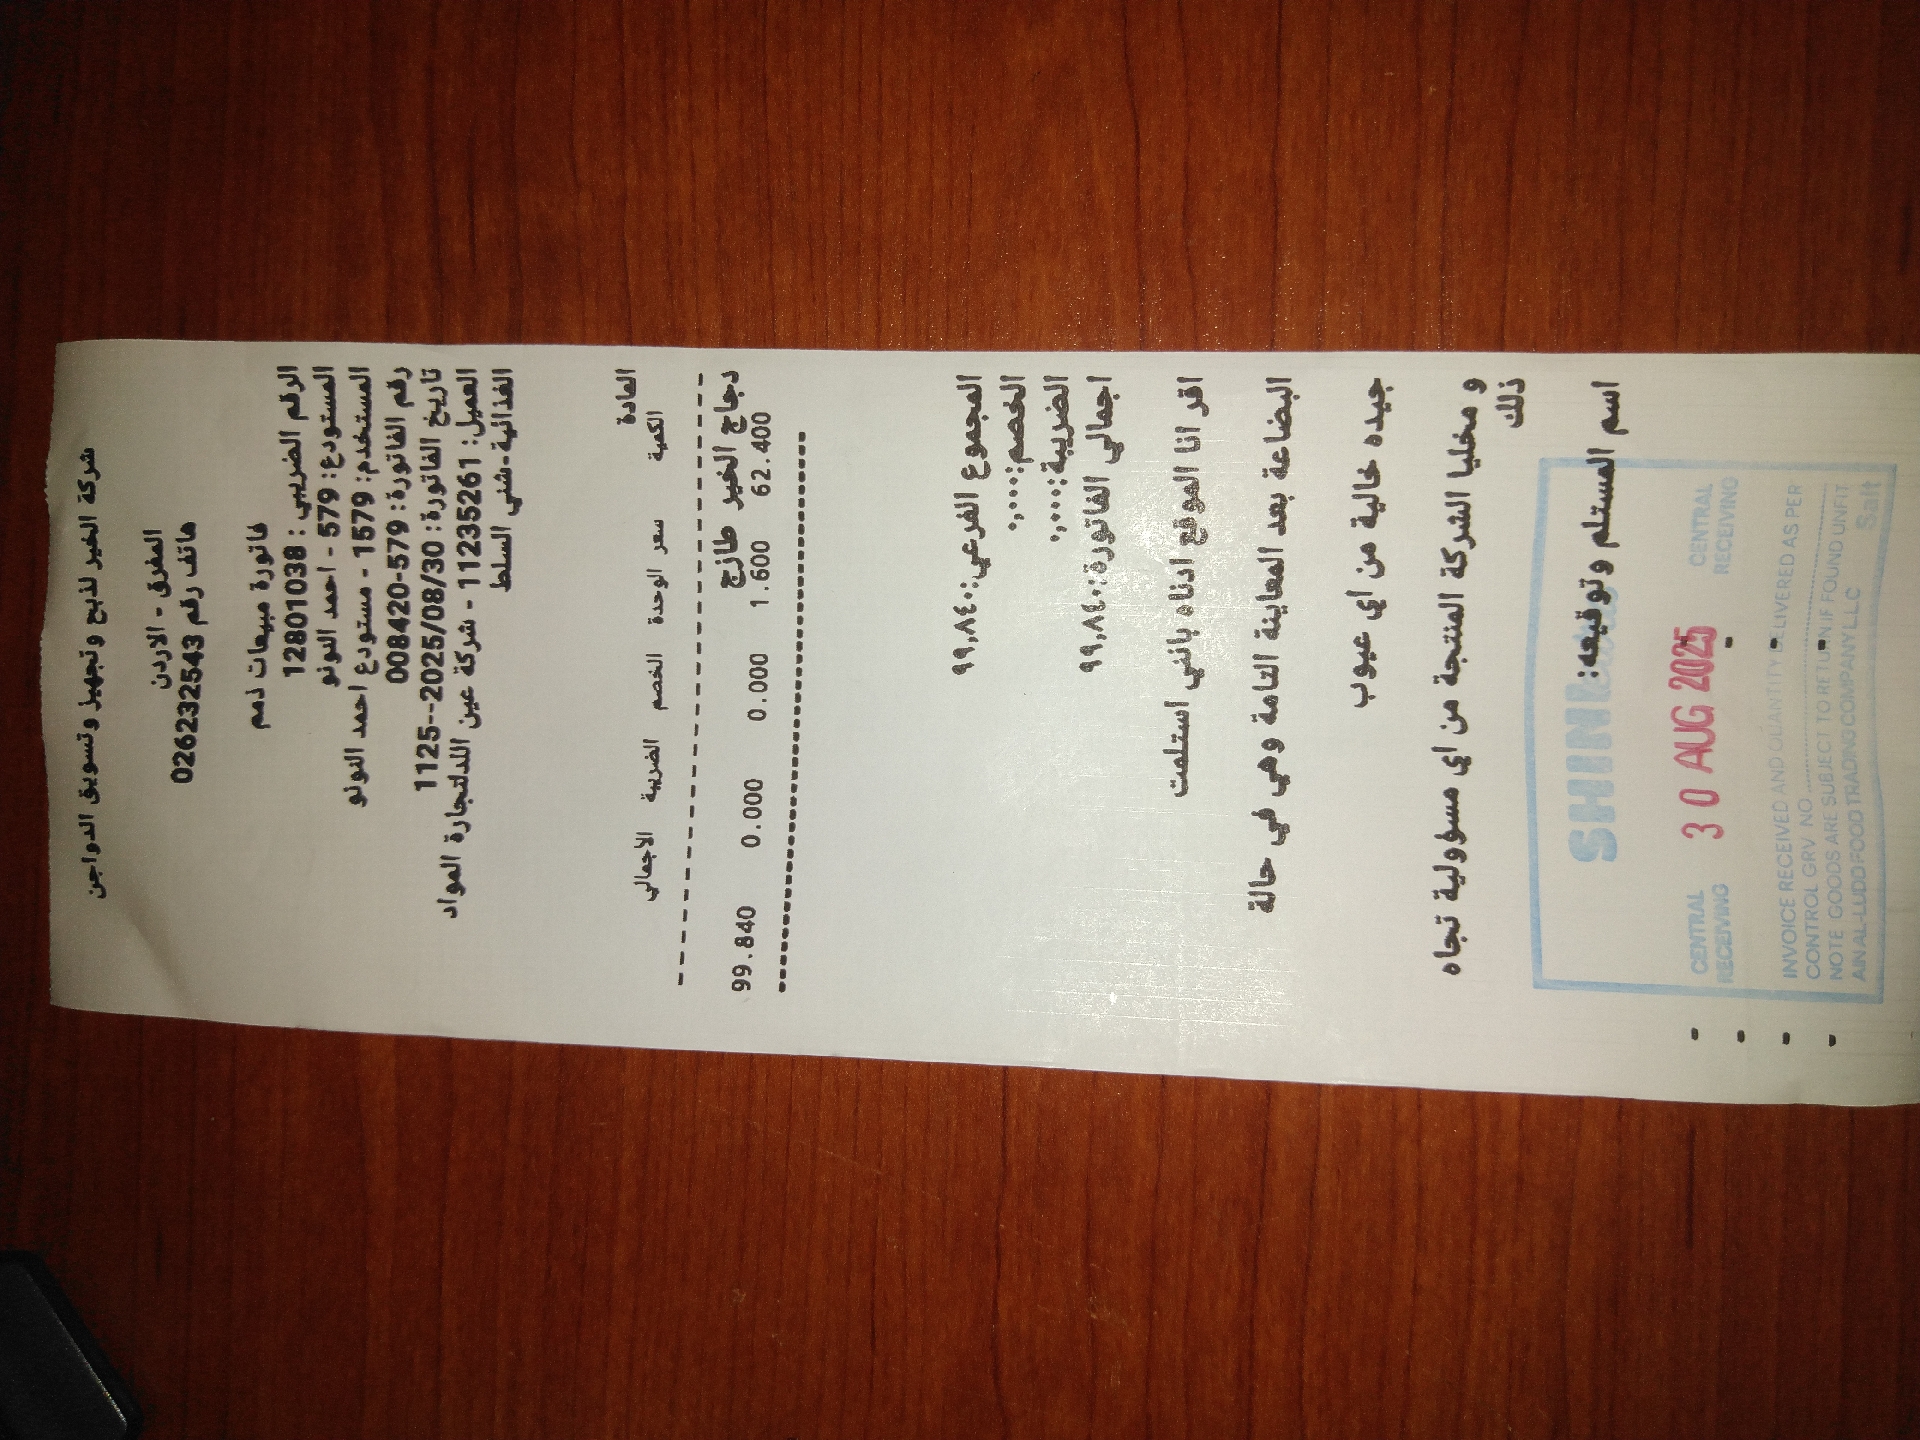 شركة الخير لذبح وتجهيز وتسويق الدواجن
المفرق - الاردن
هاتف رقم 026232543
فاتورة مبيعات ذمم
الرقم الضريبي : 12801038
المستودع: 579 - احمد النونو
المستخدم: 1579 - مستودع احمد النونو
رقم الفاتورة: 579-008420
تاريخ الفاتورة: 2025/08/30--1125
العميل: 11235261 - شركة عين اللدلتجارة المواد
الغذائية-شني السلط
المادة
الكمية سعر الوحدة الخصم الضريبة الاجمالي
دجاج الخير طازج
62.400 1.600 0.000 0.000 99.840
المجموع الفرعي:٩٩,٨٤٠
الخصم:٠,٠٠٠
الضريبة:٠,٠٠٠
اجمالي الفاتورة:٩٩,٨٤٠
اقر انا الموقع ادناه بانني استلمت
البضاعة بعد المعاينة التامة وهي في حالة
جيده خالية من اي عيوب
و مخليا الشركة المنتجة من اي مسؤولية تجاه
ذلك
اسم المستلم وتوقيعه:
CENTRAL RECEIVING 30 AUG 2025 CENTRAL RECEIVING
INVOICE RECEIVED AND QUANTITY DELIVERED AS PER
CONTROL GRV NO
NOTE GOODS ARE SUBJECT TO RETURN IF FOUND UNFIT
AIN AL-LUDD FOOD TRADING COMPANY L.L.C Salt